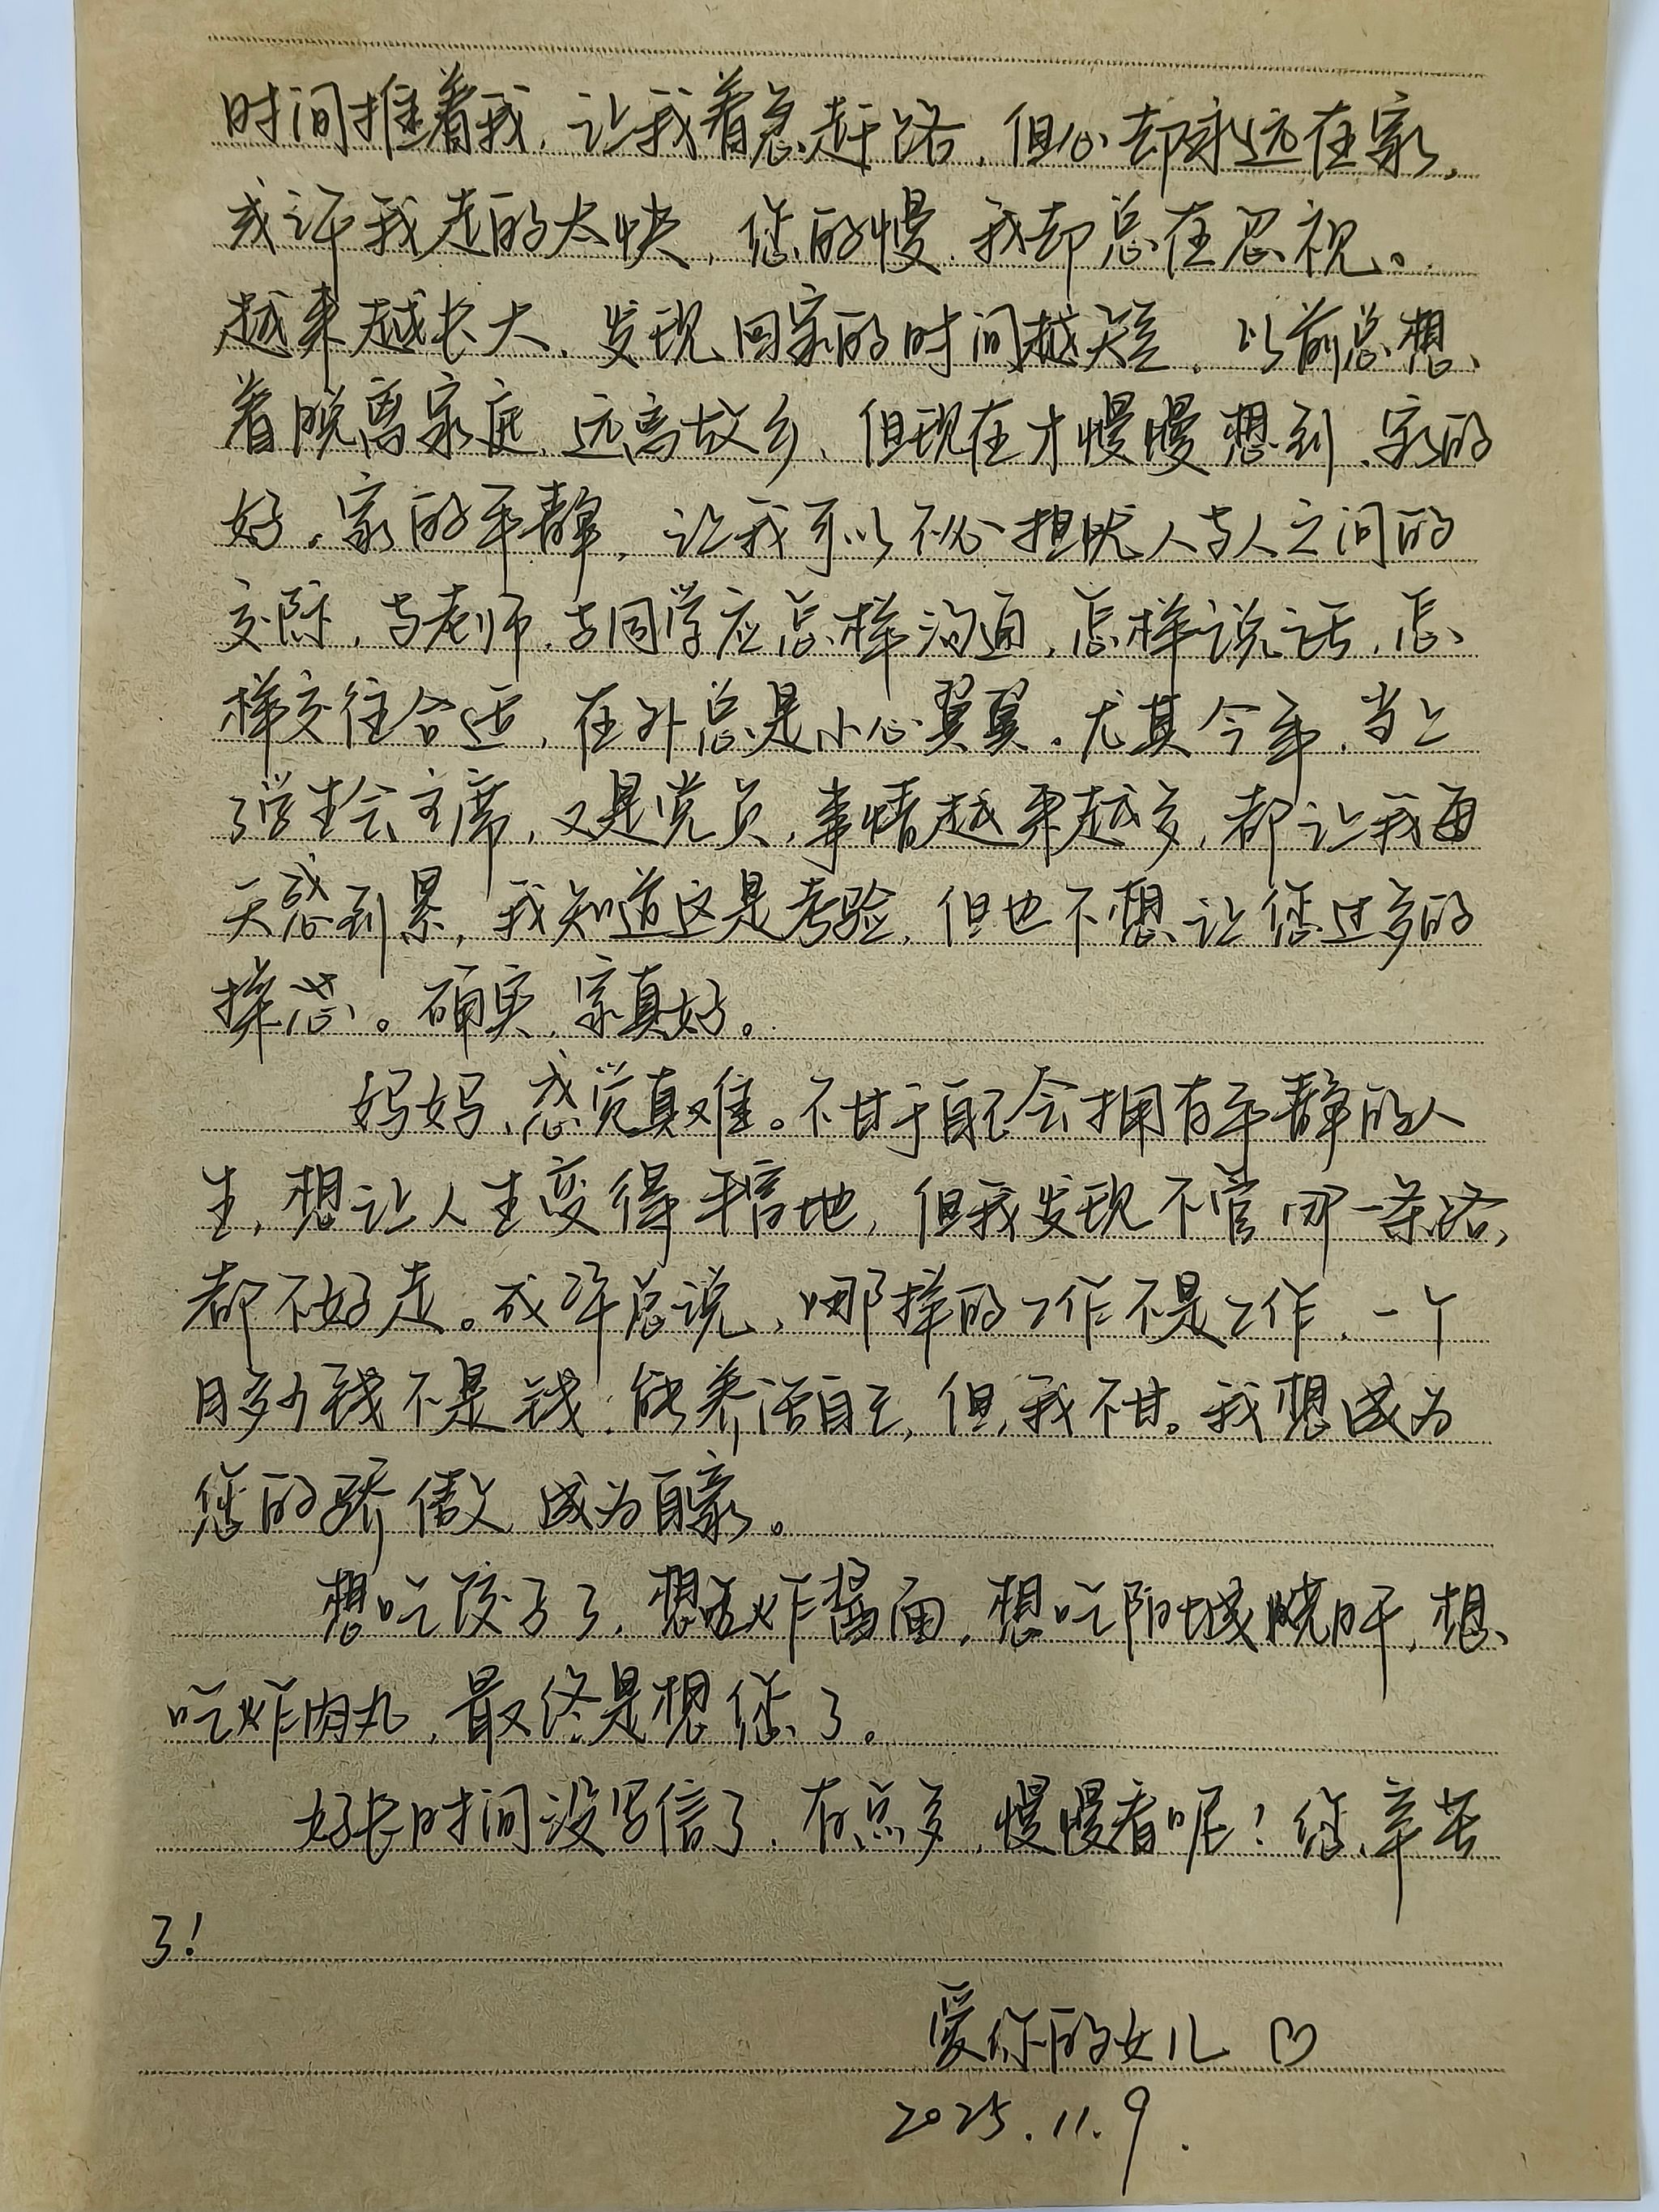 时间推着我，让我着急赶路，但心却永远在家，
或许我走的太快，您的慢，我却总在忽视。
越来越长大，发现回家的时间越短，以前总想
着脱离家庭，远离故乡，但现在才慢慢想到，家的
好。家的平静，让我可以不必担忧人与人之间的
交际，与老师，与同学应怎样沟通，怎样说话，怎
样交往合适，在外总是小心翼翼。尤其今年，当上
了学生会主席，又是党员，事情越来越多，都让我每
天感到累，我知道这是考验，但也不想让您过多的
操心。确实，家真好。
妈妈，感觉真难。不甘于自己会拥有平静的人
生，想让人生变得平富地，但我发现不管哪一条路，
都不好走。成年总说，哪样的工作不是工作，一个
月多少钱不是钱，能养活自己，但，我不甘。我想成为
您的骄傲，成为自豪。
想吃饺子了，想吃炸酱面，想吃阳城烧肝，想
吃炸肉丸，最终是想您了。
好长时间没写信了，有点多，慢慢看呢！您辛苦
了！
爱你的女儿 ♡
2025.11.9.